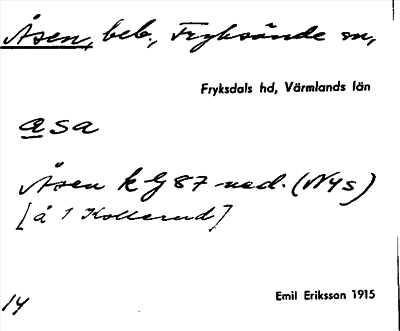 Åsen, beb., Fryksände sn,
Fryksdals hd, Värmlands län
asa
Åsen k G 87 ned. (Nys)
[å 1 Kollerud]
14
Emil Eriksson 1915